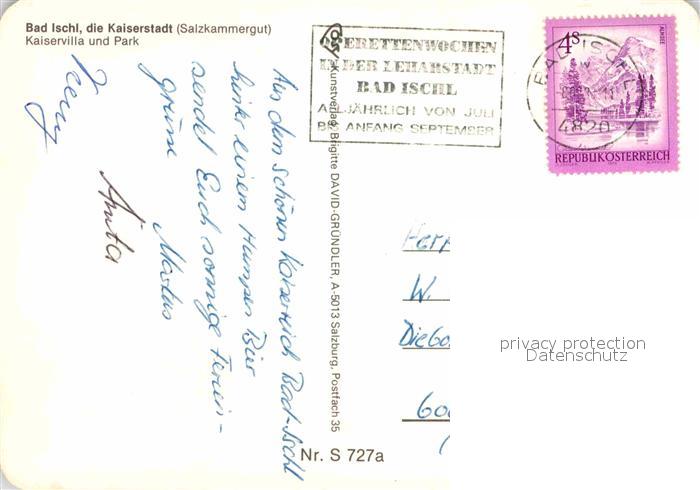 Bad Ischl, die Kaiserstadt (Salzkammergut)
Kaiservilla und Park
OPERETTENWOCHEN
IN DER LEHARSTADT
BAD ISCHL
ALLJÄHRLICH VON JULI
BIS ANFANG SEPTEMBER
4S
ALMSEE
BAD ISCHL
4820
REPUBLIK ÖSTERREICH
Kunstverlag Brigitte DAVID-GRÜNDLER, A-5013 Salzburg, Postfach 35
Aus dem schönen Kaiserreich Bad-Ischl
hinter einem Humpen Bier
sendet Euch sonnige Ferien-
grüsse
Markus
Anita
Herr
W.
privacy protection
Datenschutz
Nr. S 727a